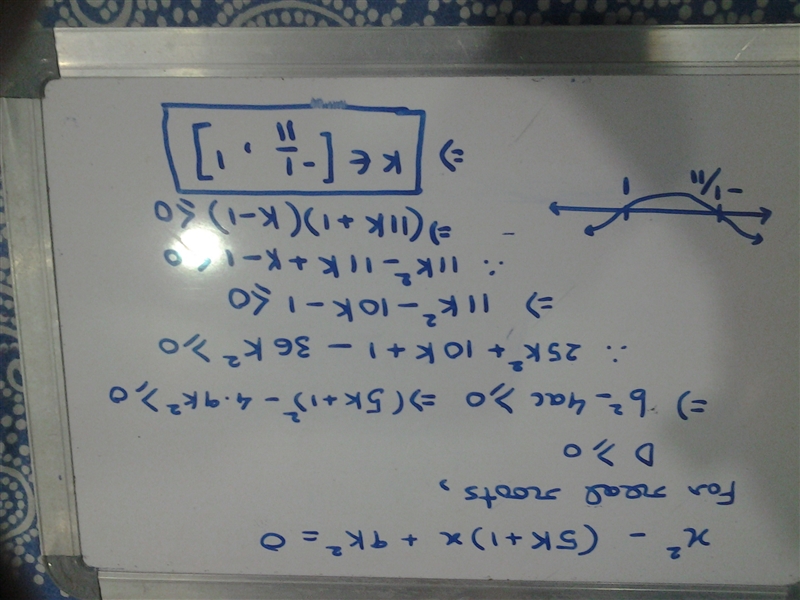 x² - (5k+1)x + 9k² = 0
For real roots,
D ≥ 0
⇒ b² - 4ac ≥ 0 ⇒ (5k+1)² - 4·9k² ≥ 0
∴ 25k² + 10k + 1 - 36k² ≥ 0
⇒ 11k² - 10k - 1 ≤ 0
∴ 11k² - 11k + k - 1 ≤ 0
⇒ (11k + 1)(k - 1) ≤ 0
⇒ k ∈ [-1/11, 1]
-1/11 1